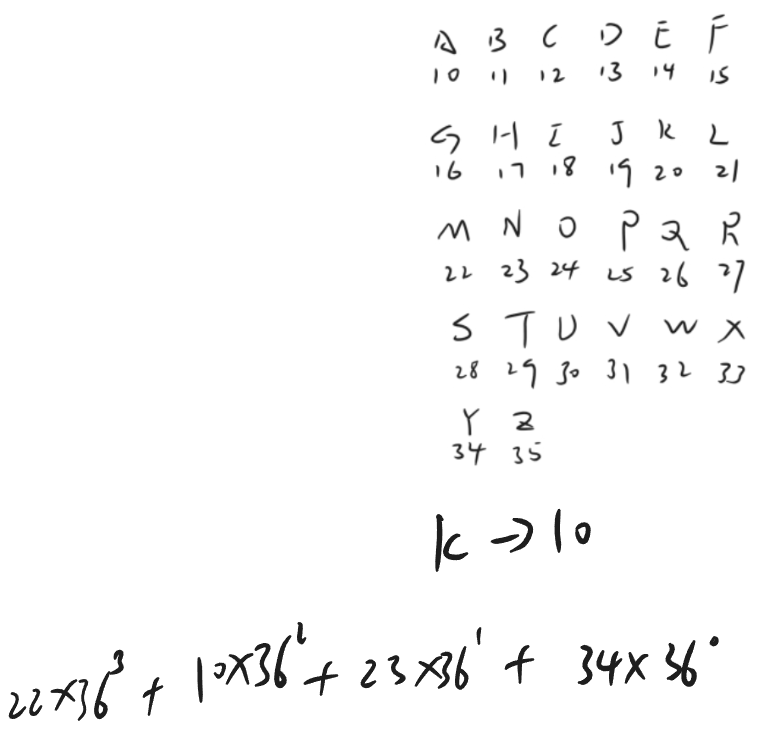 A B C D E F
10 11 12 13 14 15
G H I J K L
16 17 18 19 20 21
M N O P Q R
22 23 24 25 26 27
S T U V W X
28 29 30 31 32 33
Y Z
34 35
k → 10
22×36³ + 10×36² + 23×36¹ + 34×36⁰